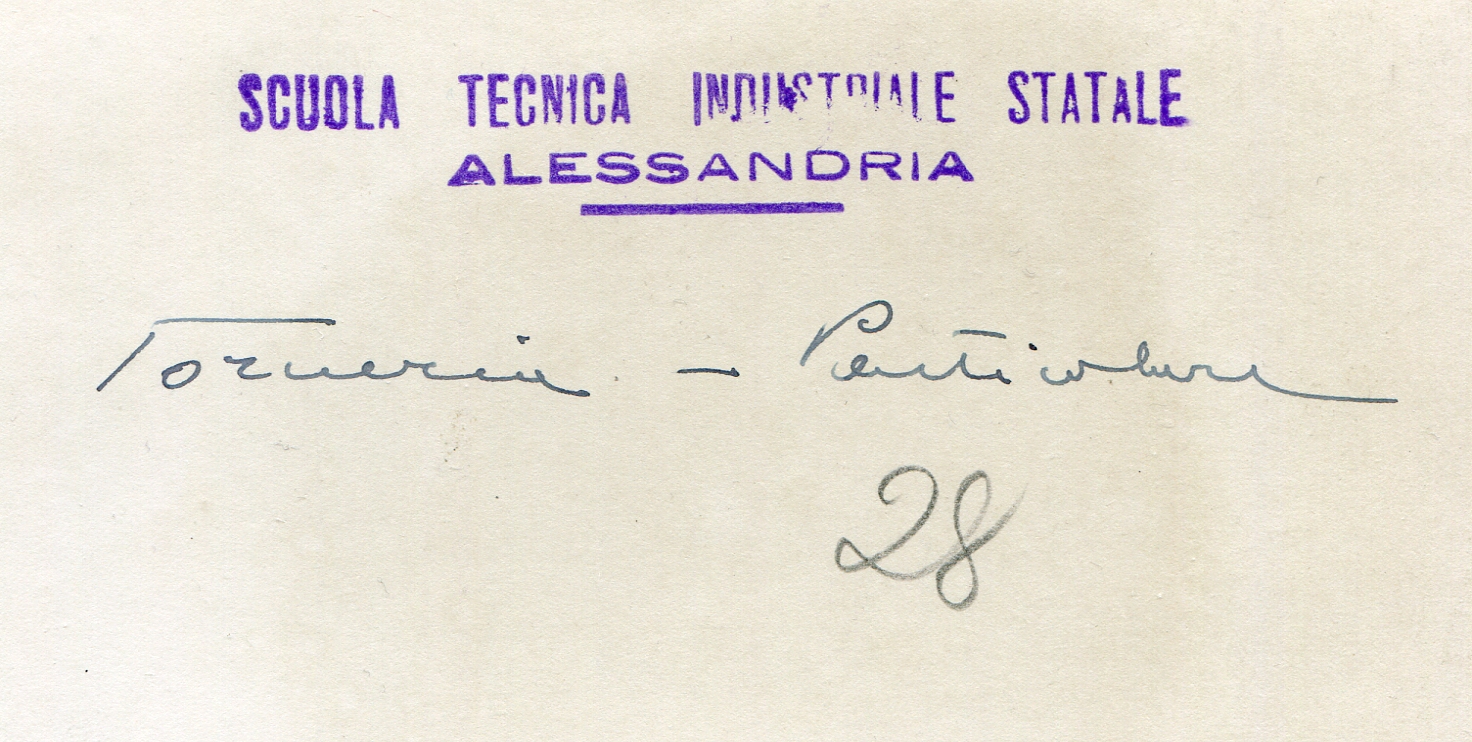 SCUOLA TECNICA INDUSTRIALE STATALE
ALESSANDRIA
Torneria - Particolare
28